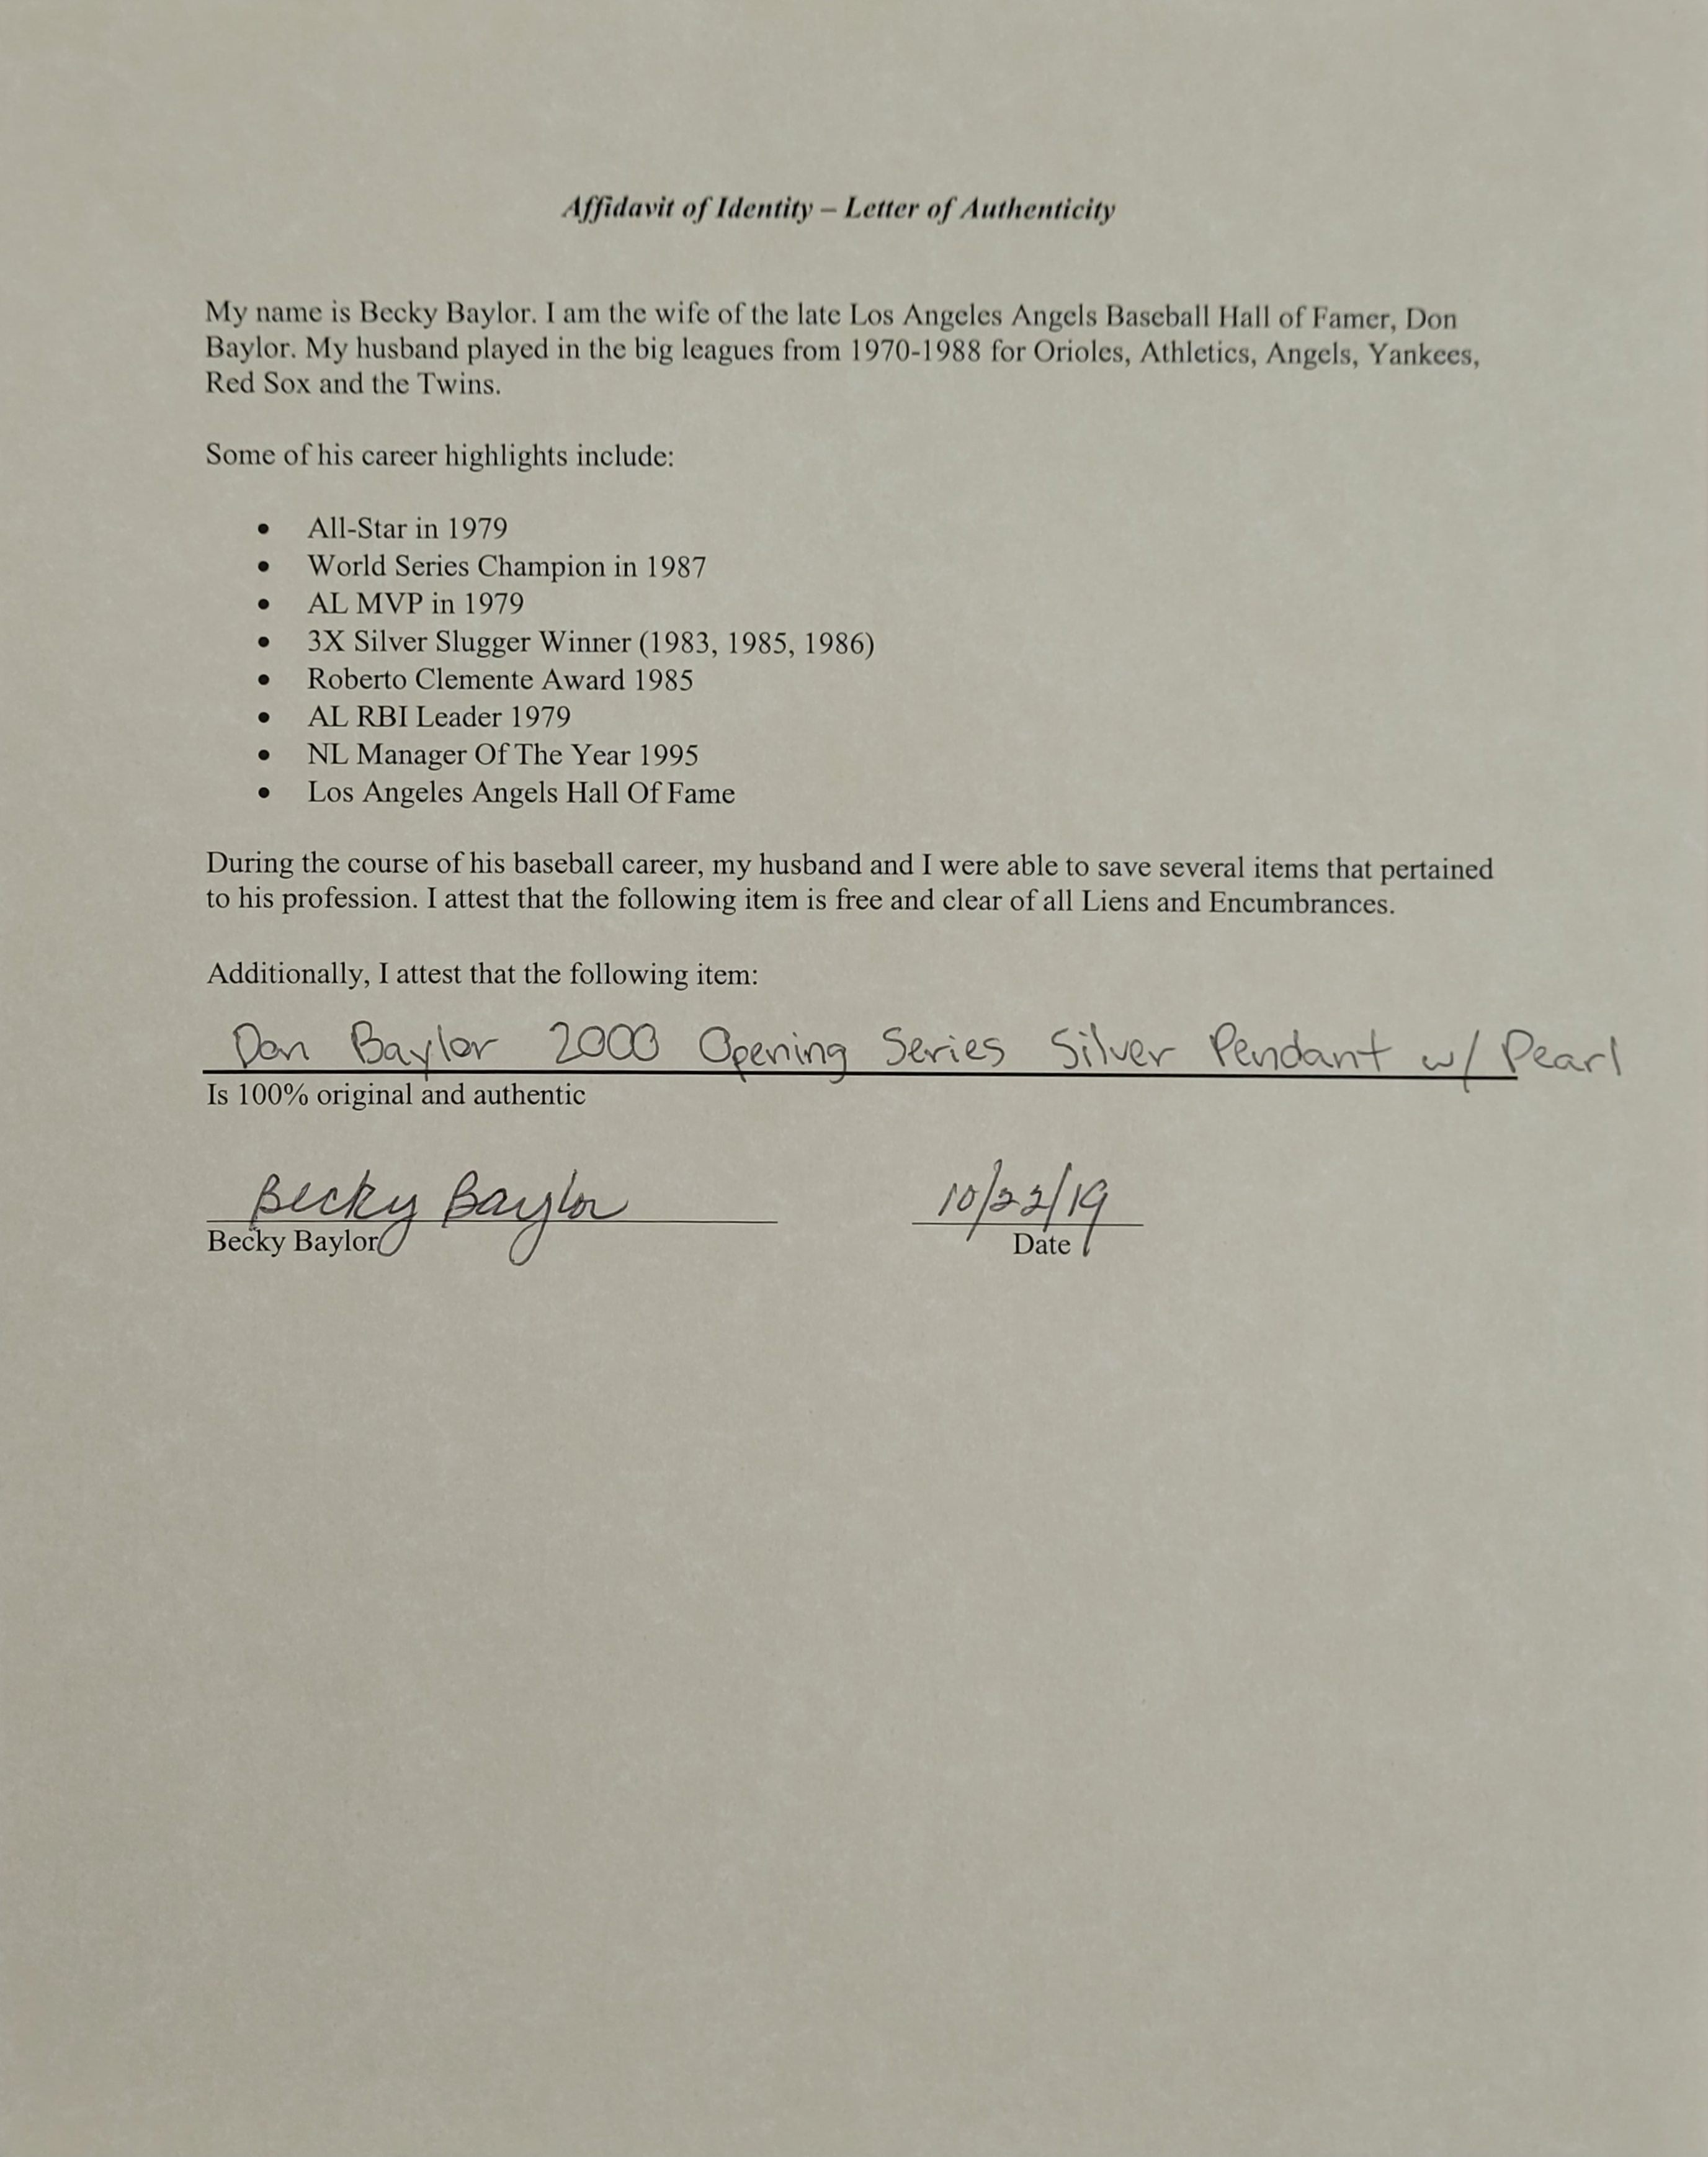 Affidavit of Identity – Letter of Authenticity
My name is Becky Baylor. I am the wife of the late Los Angeles Angels Baseball Hall of Famer, Don
Baylor. My husband played in the big leagues from 1970-1988 for Orioles, Athletics, Angels, Yankees,
Red Sox and the Twins.
Some of his career highlights include:
• All-Star in 1979
• World Series Champion in 1987
• AL MVP in 1979
• 3X Silver Slugger Winner (1983, 1985, 1986)
• Roberto Clemente Award 1985
• AL RBI Leader 1979
• NL Manager Of The Year 1995
• Los Angeles Angels Hall Of Fame
During the course of his baseball career, my husband and I were able to save several items that pertained
to his profession. I attest that the following item is free and clear of all Liens and Encumbrances.
Additionally, I attest that the following item:
Don Baylor 2000 Opening Series Silver Pendant w/ Pearl
Is 100% original and authentic
Becky Baylor 10/22/19
Becky Baylor Date